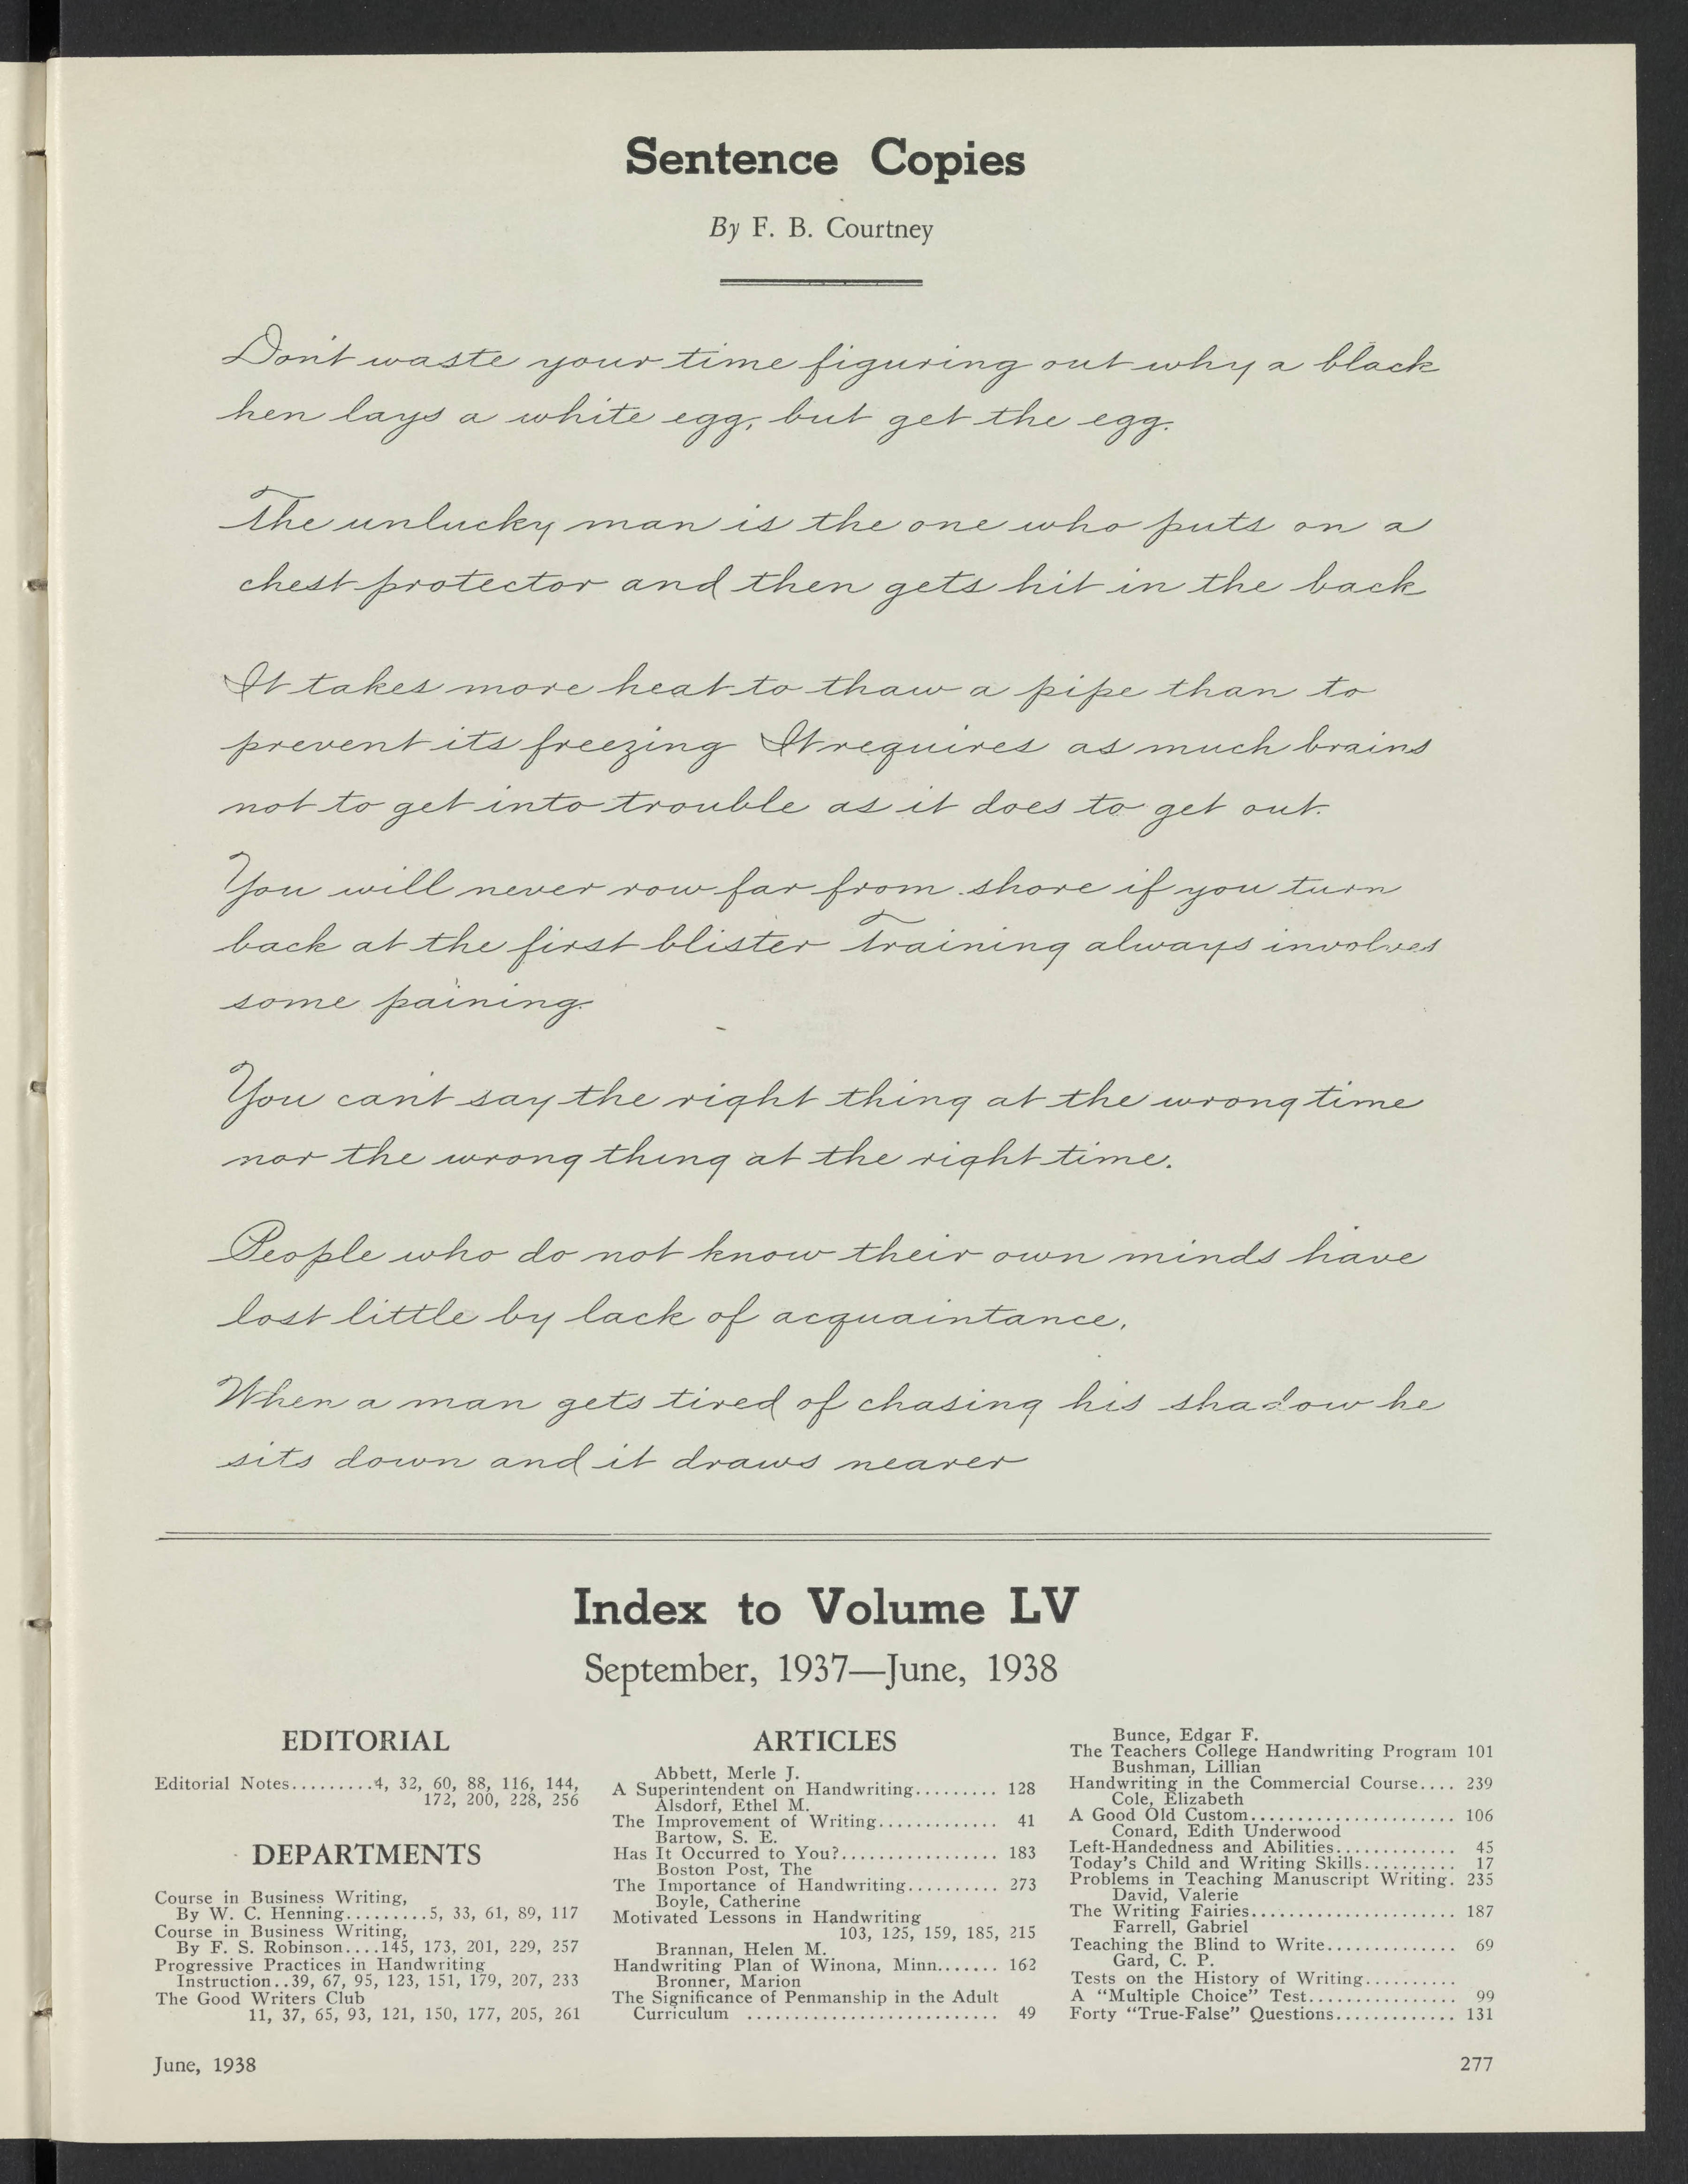 Sentence Copies
By F. B. Courtney
Don't waste your time figuring out why a black
hen lays a white egg, but get the egg.
The unlucky man is the one who puts on a
chest protector and then gets hit in the back
It takes more heat to thaw a pipe than to
prevent its freezing It requires as much brains
not to get into trouble as it does to get out.
You will never row far from shore if you turn
back at the first blister Training always involves
some paining.
You can't say the right thing at the wrong time
nor the wrong thing at the right time.
People who do not know their own minds have
lost little by lack of acquaintance.
When a man gets tired of chasing his shadow he
sits down and it draws nearer
Index to Volume LV
September, 1937—June, 1938
EDITORIAL
Editorial Notes.........4, 32, 60, 88, 116, 144,
172, 200, 228, 256
DEPARTMENTS
Course in Business Writing,
By W. C. Henning.........5, 33, 61, 89, 117
Course in Business Writing,
By F. S. Robinson....145, 173, 201, 229, 257
Progressive Practices in Handwriting
Instruction..39, 67, 95, 123, 151, 179, 207, 233
The Good Writers Club
11, 37, 65, 93, 121, 150, 177, 205, 261
ARTICLES
Abbett, Merle J.
A Superintendent on Handwriting......... 128
Alsdorf, Ethel M.
The Improvement of Writing............. 41
Bartow, S. E.
Has It Occurred to You?................. 183
Boston Post, The
The Importance of Handwriting.......... 273
Boyle, Catherine
Motivated Lessons in Handwriting
103, 125, 159, 185, 215
Brannan, Helen M.
Handwriting Plan of Winona, Minn....... 162
Bronner, Marion
The Significance of Penmanship in the Adult
Curriculum ........................... 49
Bunce, Edgar F.
The Teachers College Handwriting Program 101
Bushman, Lillian
Handwriting in the Commercial Course.... 239
Cole, Elizabeth
A Good Old Custom...................... 106
Conard, Edith Underwood
Left-Handedness and Abilities............. 45
Today's Child and Writing Skills.......... 17
Problems in Teaching Manuscript Writing. 235
David, Valerie
The Writing Fairies...................... 187
Farrell, Gabriel
Teaching the Blind to Write.............. 69
Gard, C. P.
Tests on the History of Writing..........
A "Multiple Choice" Test................ 99
Forty "True-False" Questions............. 131
June, 1938
277